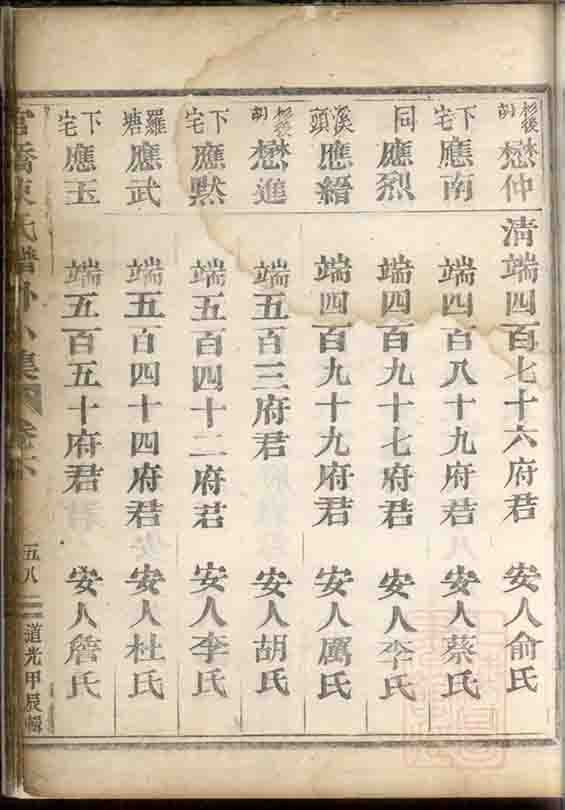 杉後 懋仲 清端四百七十六府君 安人俞氏
下宅 應南 端四百八十九府君 安人蔡氏
同 應烈 端四百九十七府君 安人李氏
溪頭 應縉 端四百九十九府君 安人厲氏
杉後 懋進 端五百三府君 安人胡氏
下宅 應默 端五百四十二府君 安人李氏
羅塘 應武 端五百四十四府君 安人杜氏
下宅 應玉 端五百五十府君 安人詹氏
官橋陳氏譜外小集 卷下 五八 道光甲辰輯